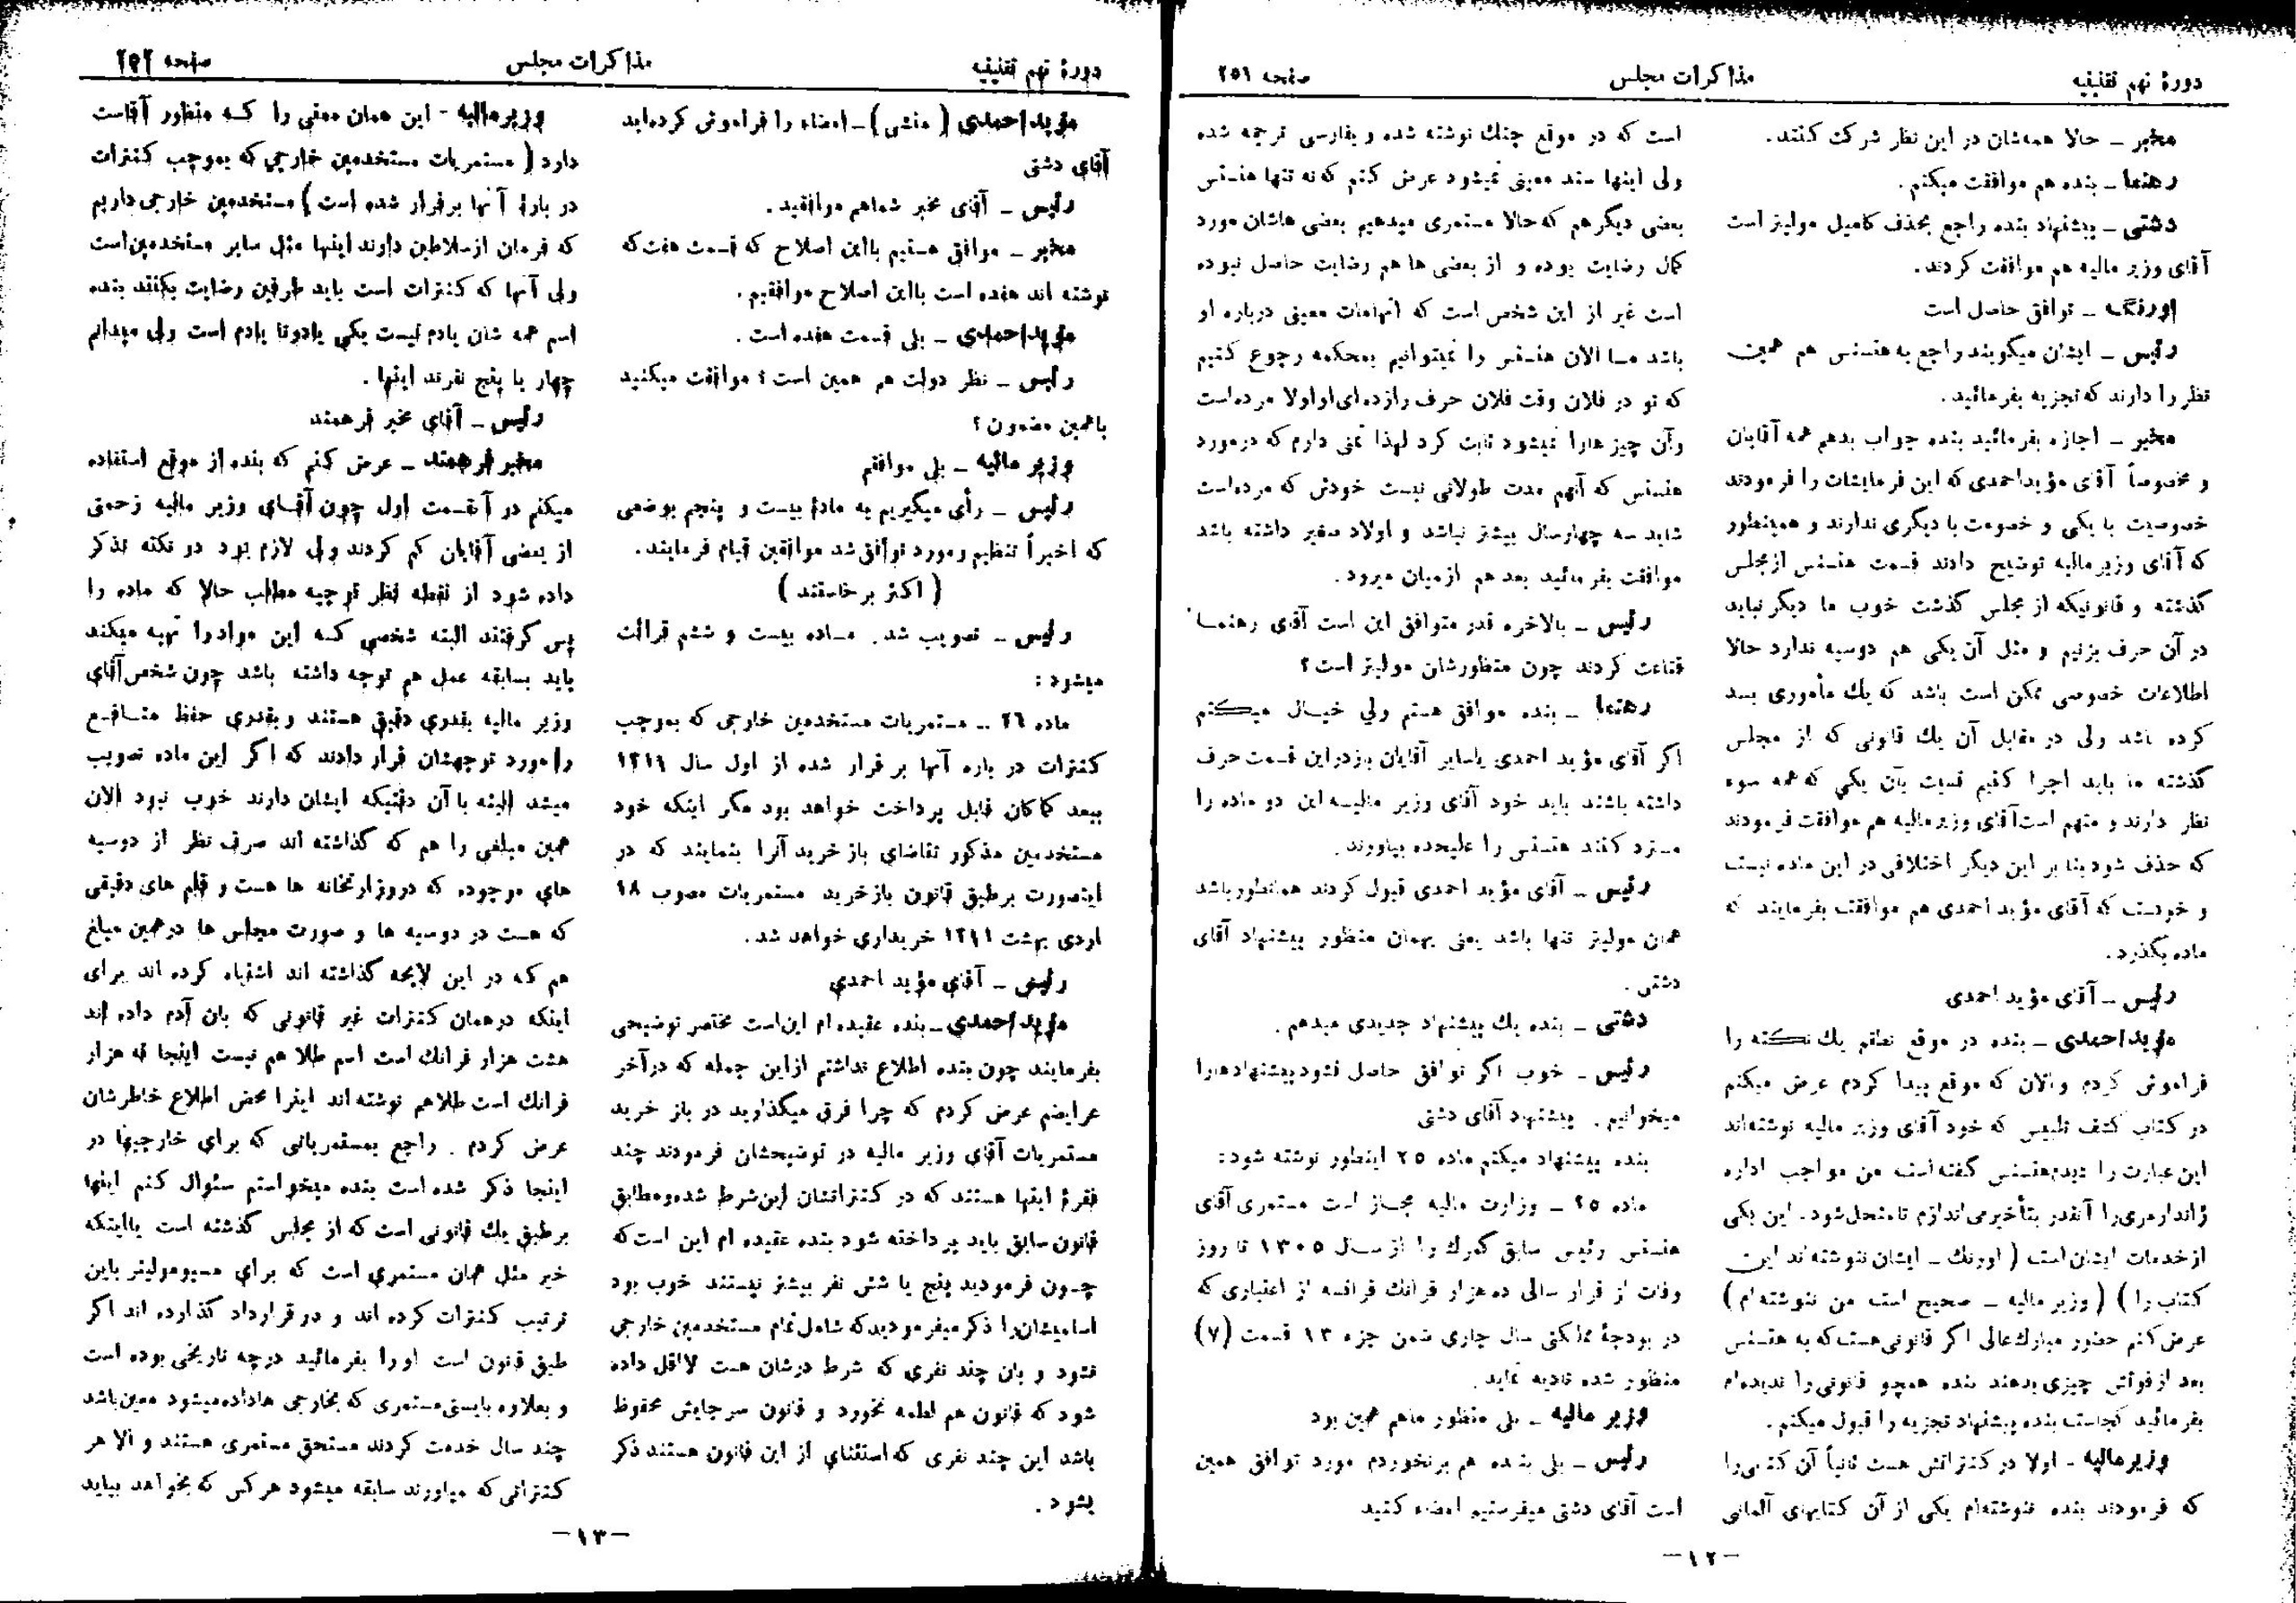 دورهٔ نهم تقنینیه
مذاکرات مجلس
صفحه ۲۵۱
مخبر ـ حالا همه‌شان در این نظر شرکت کنند.
رهنما ـ بنده هم موافقت میکنم.
دشتی ـ پیشنهاد بنده راجع بحذف کامیل مولیتر است
آقای وزیر مالیه هم موافقت کردند.
اورنگ ـ توافق حاصل است
رئیس ـ ایشان میگویند راجع به هنسنس هم همین
نظر را دارند که تجزیه بفرمائید.
مخبر ـ اجازه بفرمائید بنده جواب بدهم همه آقایان
و مخصوصاً آقای مؤیداحمدی که این فرمایشات را فرمودند
خصوصیت با یکی و خصومت با دیگری ندارند و همینطور
که آقای وزیر مالیه توضیح دادند قسمت هنسنس از مجلس
گذشته و قانونیکه از مجلس گذشت خوب ما دیگر نباید
در آن حرف بزنیم و مثل آن یکی هم دوسیه ندارد حالا
اطلاعات خصوصی ممکن است باشد که یك مأموری بد
کرده باشد ولی در مقابل آن یك قانونی که از مجلس
گذشته ما باید اجرا کنیم نسبت بآن یکی که همه سوء
نظر دارند و متهم است آقای وزیر مالیه هم موافقت فرمودند
که حذف شود بنا بر این دیگر اختلافی در این ماده نیست
و خوبست که آقای مؤید احمدی هم موافقت بفرمایند که
ماده بگذرد.
رئیس ـ آقای مؤید احمدی
مؤیداحمدی ـ بنده در موقع نطقم یك نکته را
فراموش کردم والان که موقع پیدا کردم عرض میکنم
در کتاب کشف تلبیس که خود آقای وزیر مالیه نوشته‌اند
این عبارت را دیدم هنسنس گفته است من مواجب اداره
ژاندارمری را آنقدر بتأخیر می‌اندازم تا منحل شود. این یکی
از خدمات ایشان است ( اورنك ـ ایشان ننوشته‌اند این
کتاب را ) ( وزیر مالیه ـ صحیح است من ننوشته‌ام )
عرض کنم حضور مبارك عالی اگر قانونی هست که به هنسنس
بعد از فوتش چیزی بدهند بنده همچو قانونی را ندیده‌ام
بفرمائید کجاست بنده پیشنهاد تجزیه را قبول میکنم.
وزیر مالیه ـ اولا در کنتراتش هست ثانیاً آن کتابی را
که فرمودند بنده ننوشته‌ام یکی از آن کتابهای آلمانی
است که در موقع جنك نوشته شده و بفارسی ترجمه شده
ولی اینها سند معینی نمیشود عرض کنم که نه تنها هنسنس
بعضی دیگر هم که حالا مستمری میدهیم بعضی هاشان مورد
کمال رضایت بوده و از بعضی ها هم رضایت حاصل نبوده
است غیر از این شخص است که اتهامات معینی درباره او
باشد ما الان هنسنس را نمیتوانیم بمحکمه رجوع کنیم
که تو در فلان وقت فلان حرف را زده‌ای او اولا مرده است
وآن چیز هارا نمیشود ثابت کرد لهذا تمنی دارم که درمورد
هنسنس که آنهم مدت طولانی نیست خودش که مرده است
شاید سه چهارسال بیشتر نباشد و اولاد صغیر داشته باشد
موافقت بفرمائید بعد هم ازمیان میرود.
رئیس ـ بالاخره قدر متوافق این است آقای رهنما
قناعت کردند چون منظورشان مولیتر است؟
رهنما ـ بنده موافق هستم ولی خیال میکنم
اگر آقای مؤید احمدی یا سایر آقایان باز در این قسمت حرف
داشته باشند باید خود آقای وزیر مالیه این دو ماده را
مسترد کنند هنسنس را علیحده بیاورند.
رئیس ـ آقای مؤید احمدی قبول کردند همانطور باشد
همان مولیتر تنها باشد یعنی بهمان منظور پیشنهاد آقای
دشتی.
دشتی ـ بنده یك پیشنهاد جدیدی میدهم.
رئیس ـ خوب اگر توافق حاصل نشود پیشنهادها را
میخوانیم. پیشنهاد آقای دشتی
بنده پیشنهاد میکنم ماده ۲۵ اینطور نوشته شود:
ماده ۲۵ ـ وزارت مالیه مجاز است مستمری آقای
هنسنس رئیس سابق گمرك را از سال ۱۳۰۵ تا روز
وفات از قرار سالی ده هزار فرانك فرانسه از اعتباری که
در بودجهٔ مملکتی سال جاری ضمن جزء ۱۳ قسمت (۷)
منظور شده تادیه نماید.
وزیر مالیه ـ بلی منظور ماهم همین بود
رئیس ـ بلی بنده هم برنخوردم مورد توافق همین
است آقای دشتی میفرستیم امضاء کنید
ـ۱۲ـ
دورهٔ نهم تقنینیه
مذاکرات مجلس
صفحه ۲۵۲
مؤیداحمدی ( منشی ) ـ امضاء را فراموش کرده‌اید
آقای دشتی
رئیس ـ آقای مخبر شماهم موافقید.
مخبر ـ موافق هستیم بااین اصلاح که قسمت هفت که
نوشته اند هفده است بااین اصلاح موافقیم.
مؤیداحمدی ـ بلی قسمت هفده است.
رئیس ـ نظر دولت هم همین است؟ موافقت میکنید
باهمین مضمون؟
وزیر مالیه ـ بلی موافقم
رئیس ـ رأی میگیریم به مادهٔ بیست و پنجم بوضعی
که اخیراً تنظیم و مورد توافق شد موافقین قیام فرمایند.
( اکثر برخاستند )
رئیس ـ تصویب شد. ماده بیست و ششم قرائت
میشود:
ماده ۲۶ ـ مستمریات مستخدمین خارجی که بموجب
کنترات در باره آنها بر قرار شده از اول سال ۱۳۱۱
ببعد کماکان قابل پرداخت خواهد بود مگر اینکه خود
مستخدمین مذکور تقاضای باز خرید آنرا بنمایند که در
اینصورت برطبق قانون بازخرید مستمریات مصوب ۱۸
اردی بهشت ۱۳۱۱ خریداری خواهد شد.
رئیس ـ آقای مؤید احمدی
مؤیداحمدی ـ بنده عقیده ام این است مختصر توضیحی
بفرمایند چون بنده اطلاع نداشتم از این جمله که در آخر
عرایضم عرض کردم که چرا فرق میگذارید در باز خرید
مستمریات آقای وزیر مالیه در توضیحشان فرمودند چند
فقرهٔ اینها هستند که در کنتراتشان این شرط شده ومطابق
قانون سابق باید پرداخته شود بنده عقیده ام این است که
چون فرمودید پنج یا شش نفر بیشتر نیستند خوب بود
اسامیشان را ذکر میفرمودید که شامل تمام مستخدمین خارجی
نشود و بان چند نفری که شرط درشان هست لااقل داده
شود که قانون هم لطمه نخورد و قانون سرجایش محفوظ
باشد این چند نفری که استثنای از این قانون هستند ذکر
بشود.
وزیرمالیه ـ این همان معنی را که منظور آقاست
دارد ( مستمریات مستخدمین خارجی که بموجب کنترات
در بارهٔ آنها برقرار شده است ) مستخدمین خارجی داریم
که فرمان از سلاطین دارند اینها مثل سایر مستخدمین است
ولی آنها که کنترات است باید طرفین رضایت بکنند بنده
اسم همه شان یادم نیست یکی یادوتا یادم است ولی میدانم
چهار یا پنج نفرند اینها.
رئیس ـ آقای مخبر فرهمند
مخبر فرهمند ـ عرض کنم که بنده از موقع استفاده
میکنم در آنقسمت اول چون آقای وزیر مالیه زحمتی
از بعضی آقایان کم کردند ولی لازم بود دو نکته تذکر
داده شود از نقطه نظر توجیه مطالب حالا که ماده را
پس گرفتند البته شخصی که این مواد را تهیه میکند
باید بسابقه عمل هم توجه داشته باشد چون شخص آقای
وزیر مالیه بقدری دقیق هستند و بقدری حفظ منافع
را مورد توجهشان قرار دادند که اگر این ماده تصویب
میشد البته با آن دقتیکه ایشان دارند خوب نبود الان
همین مبلغی را هم که گذاشته اند صرف نظر از دوسیه
های موجوده که دروزارتخانه ها هست و قلم های دقیقی
که هست در دوسیه ها و صورت مجلس ها درهمین مبلغ
هم که در این لایحه گذاشته اند اشتباه کرده اند برای
اینکه درهمان کنترات غیر قانونی که بان آدم داده اند
هشت هزار فرانك است اسم طلا هم نیست اینجا نه هزار
فرانك است طلاهم نوشته اند اینرا محض اطلاع خاطرشان
عرض کردم. راجع بمستمریاتی که برای خارجیها در
اینجا ذکر شده است بنده میخواستم سئوال کنم اینها
برطبق یك قانونی است که از مجلس گذشته است یااینکه
خیر مثل همان مستمری است که برای مسیومولیتر باین
ترتیب کنترات کرده اند و در قرارداد گذارده اند اگر
طبق قانون است او را بفرمائید درچه تاریخی بوده است
و بعلاوه بایستی مستمری که بخارجی هاداده میشود معین باشد
چند سال خدمت کردند مستحق مستمری هستند و الا هر
کنتراتی که میاورند سابقه میشود هرکس که بخواهد بیاید
ـ۱۳ـ